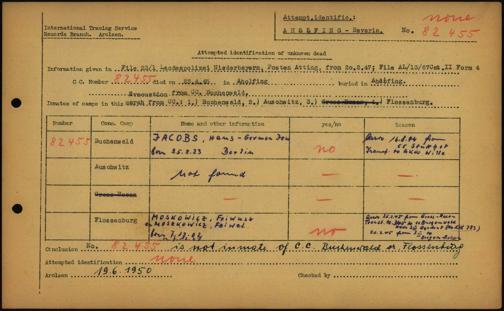 International Tracing Service
Records Branch. Arolsen.
Attempt.identific.: none
ANHLFING - Bavaria. No. 82 455
Attempted identification of unknown dead
Information given in File 22/1 Landespolizei Niederbayern, Posten Atting, from 20.2.47;
C.C. Number 82455 died on in Aholfing buried in
Evacuation from CC. Buchenwald,
Inmates of camps in the march from CC.: 1.) Buchenwald, 2.) Auschwitz, 3.) Flossenburg.
Number Conc. Camp Name and other information yes/no Reason
82455 Buchenwald JACOBS, Hans-German Jew
born 25.8.23 Berlin no
Auschwitz Not found — —
Gross Rosen — — —
Flossenburg MOSKOWICZ, Faiwus
MOSKOWICZ, Faiwel no
Conclusion No. 82455 is not inmate of C.C. Buchenwald or Flossenbürg
Attempted identification none
Arolsen 19.6.1950 Checked by